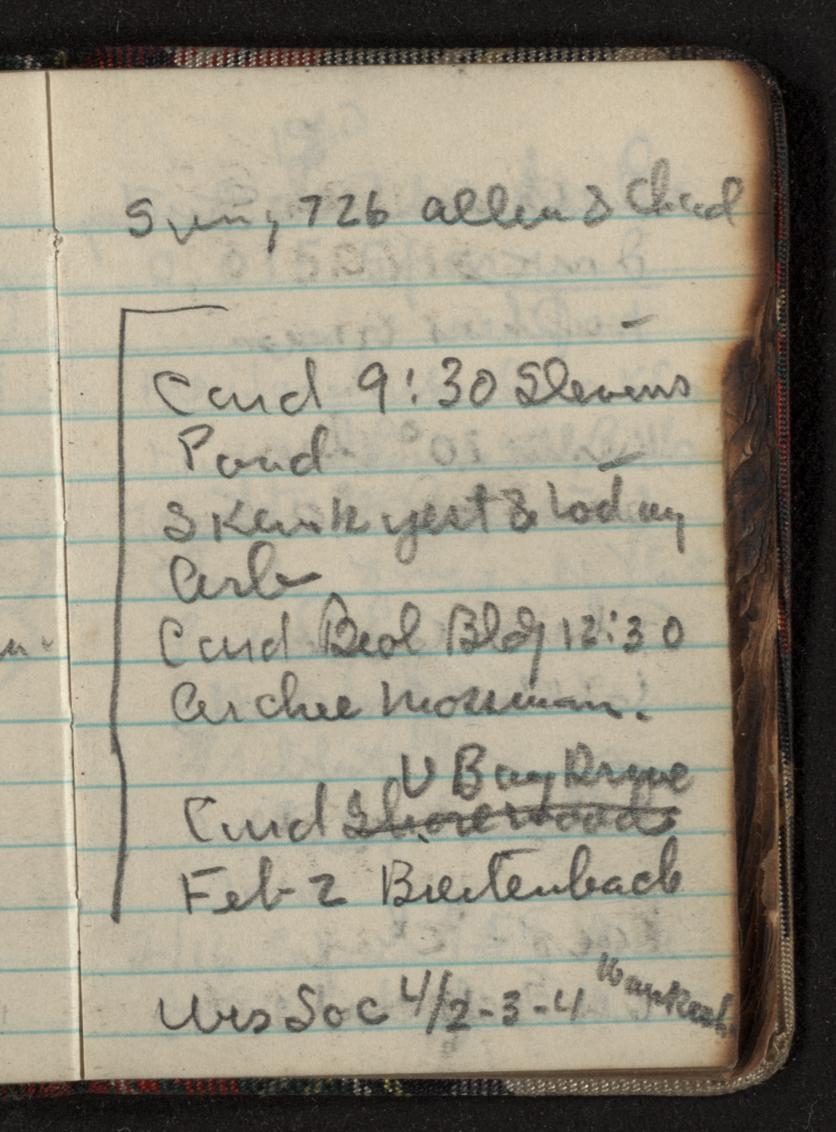 Sun, 726 allen & Chad
Card 9:30 Stevens
Pond
Skunk yest & today
Arb
Card Biol Bldg 12:30
Archie Mossman.
U Bay Drive
Card Shorewood
Feb 2 Breitenbach
Wis Soc 4/2-3-4 Waukesh.